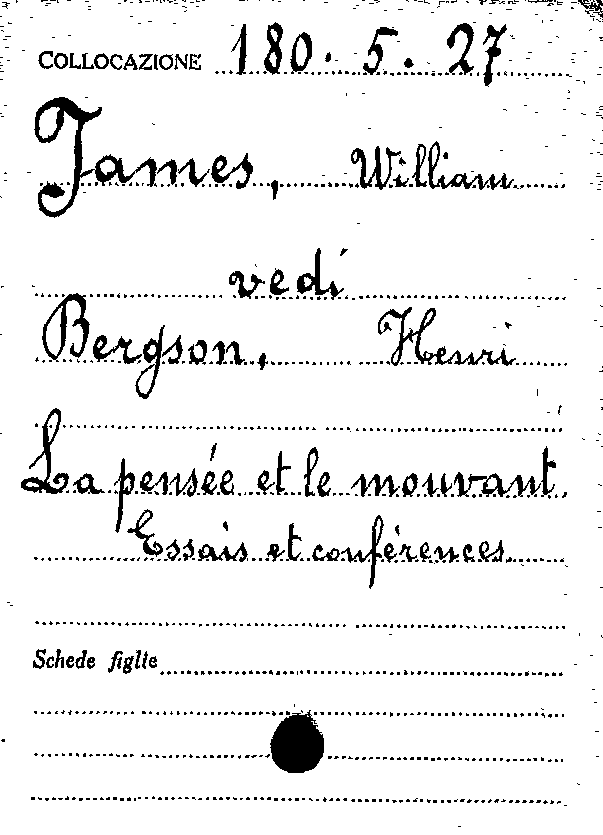 COLLOCAZIONE 180. 5. 27
James, William
vedi
Bergson, Henri
La pensée et le mouvant.
Essais et conférences.
Schede figlie